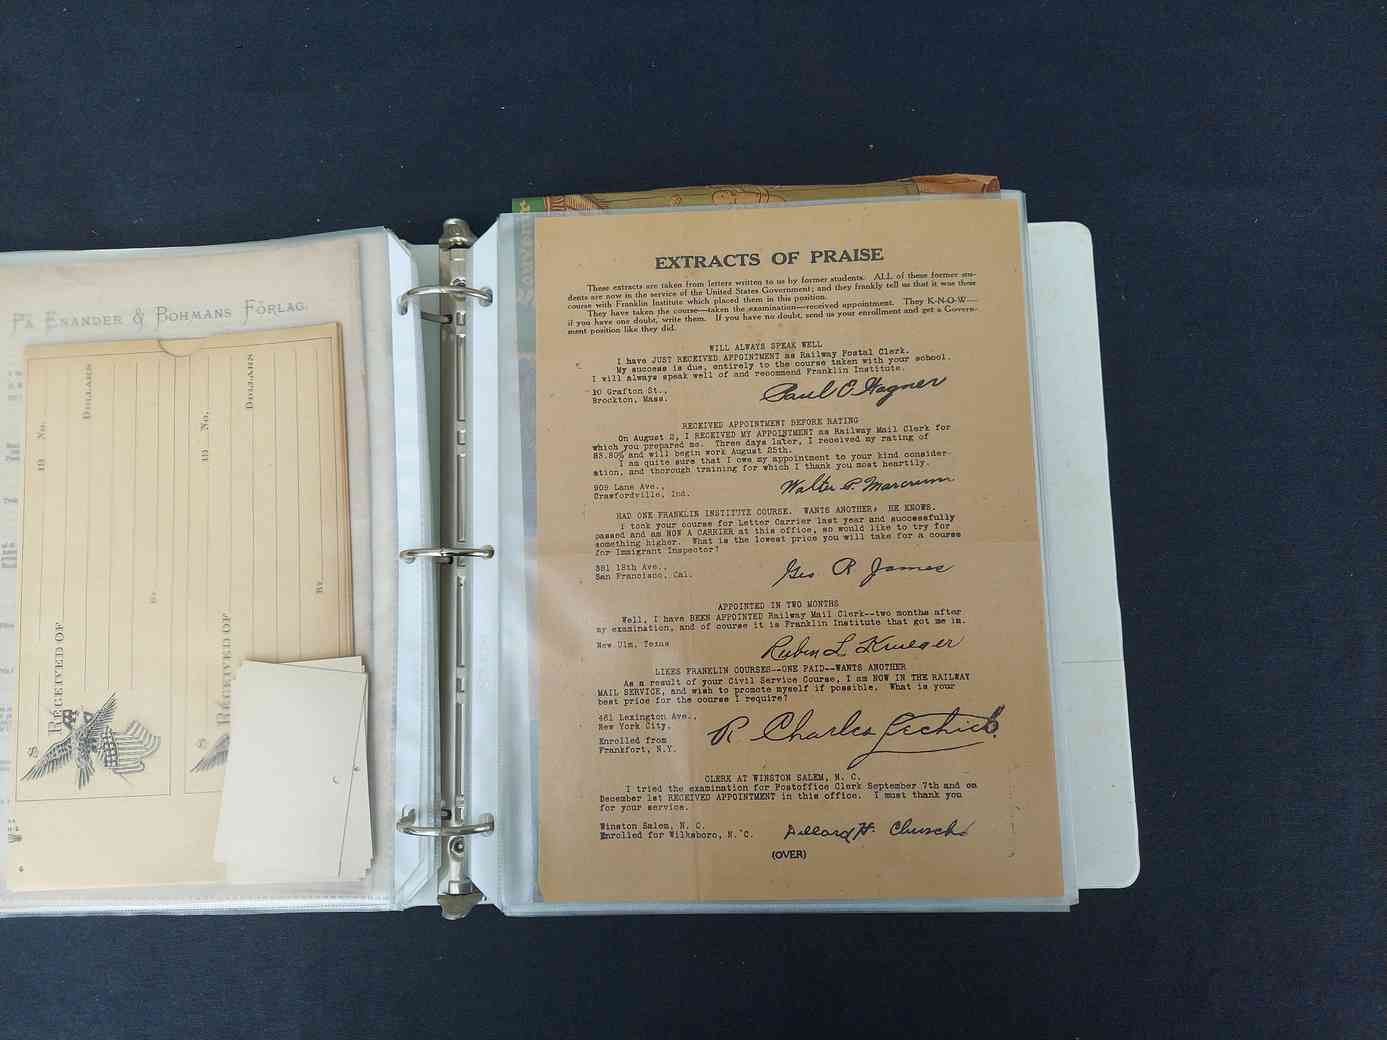 På Enander & Bohmans Förlag.
Dollars
Dollars
No.
No.
19
19
Received of
Received of
$
$
Souvenir
EXTRACTS OF PRAISE
These extracts are taken from letters written to us by former students. ALL of these former stu-
dents are now in the service of the United States Government; and they frankly tell us that it was their
course with Franklin Institute which placed them in this position.
They have taken the course—taken the examination—received appointment. They K-N-O-W—
if you have one doubt, write them. If you have no doubt, send us your enrollment and get a Govern-
ment position like they did.
WILL ALWAYS SPEAK WELL
I have JUST RECEIVED APPOINTMENT as Railway Postal Clerk.
My success is due, entirely to the course taken with your school.
I will always speak well of and recommend Franklin Institute.
10 Grafton St.,
Brockton, Mass.
Paul E Wagner
RECEIVED APPOINTMENT BEFORE RATING
On August 2, I RECEIVED MY APPOINTMENT as Railway Mail Clerk for
which you prepared me. Three days later, I received my rating of
85.80% and will begin work August 25th.
I am quite sure that I owe my appointment to your kind consider-
ation, and thorough training for which I thank you most heartily.
909 Lane Ave.,
Crawfordville, Ind.
Walter P. Marcrum
HAD ONE FRANKLIN INSTITUTE COURSE. WANTS ANOTHER, HE KNOWS.
I took your course for Letter Carrier last year and successfully
passed and am NOW A CARRIER at this office, so would like to try for
something higher. What is the lowest price you will take for a course
for Immigrant Inspector?
381 18th Ave.,
San Francisco, Cal.
Geo R James
APPOINTED IN TWO MONTHS
Well, I have BEEN APPOINTED Railway Mail Clerk--two months after
my examination, and of course it is Franklin Institute that got me in.
New Ulm, Texas
Ruben L Krueger
LIKES FRANKLIN COURSES--ONE PAID--WANTS ANOTHER
As a result of your Civil Service Course, I am NOW IN THE RAILWAY
MAIL SERVICE, and wish to promote myself if possible. What is your
best price for the course I require?
461 Lexington Ave.,
New York City.
R Charles
Enrolled from
Frankfort, N.Y.
CLERK AT WINSTON SALEM, N. C.
I tried the examination for Postoffice Clerk September 7th and on
December 1st RECEIVED APPOINTMENT in this office. I must thank you
for your service.
Winston Salem, N. C.
Enrolled for Wilksboro, N. C.
Dillard H. Church
(OVER)